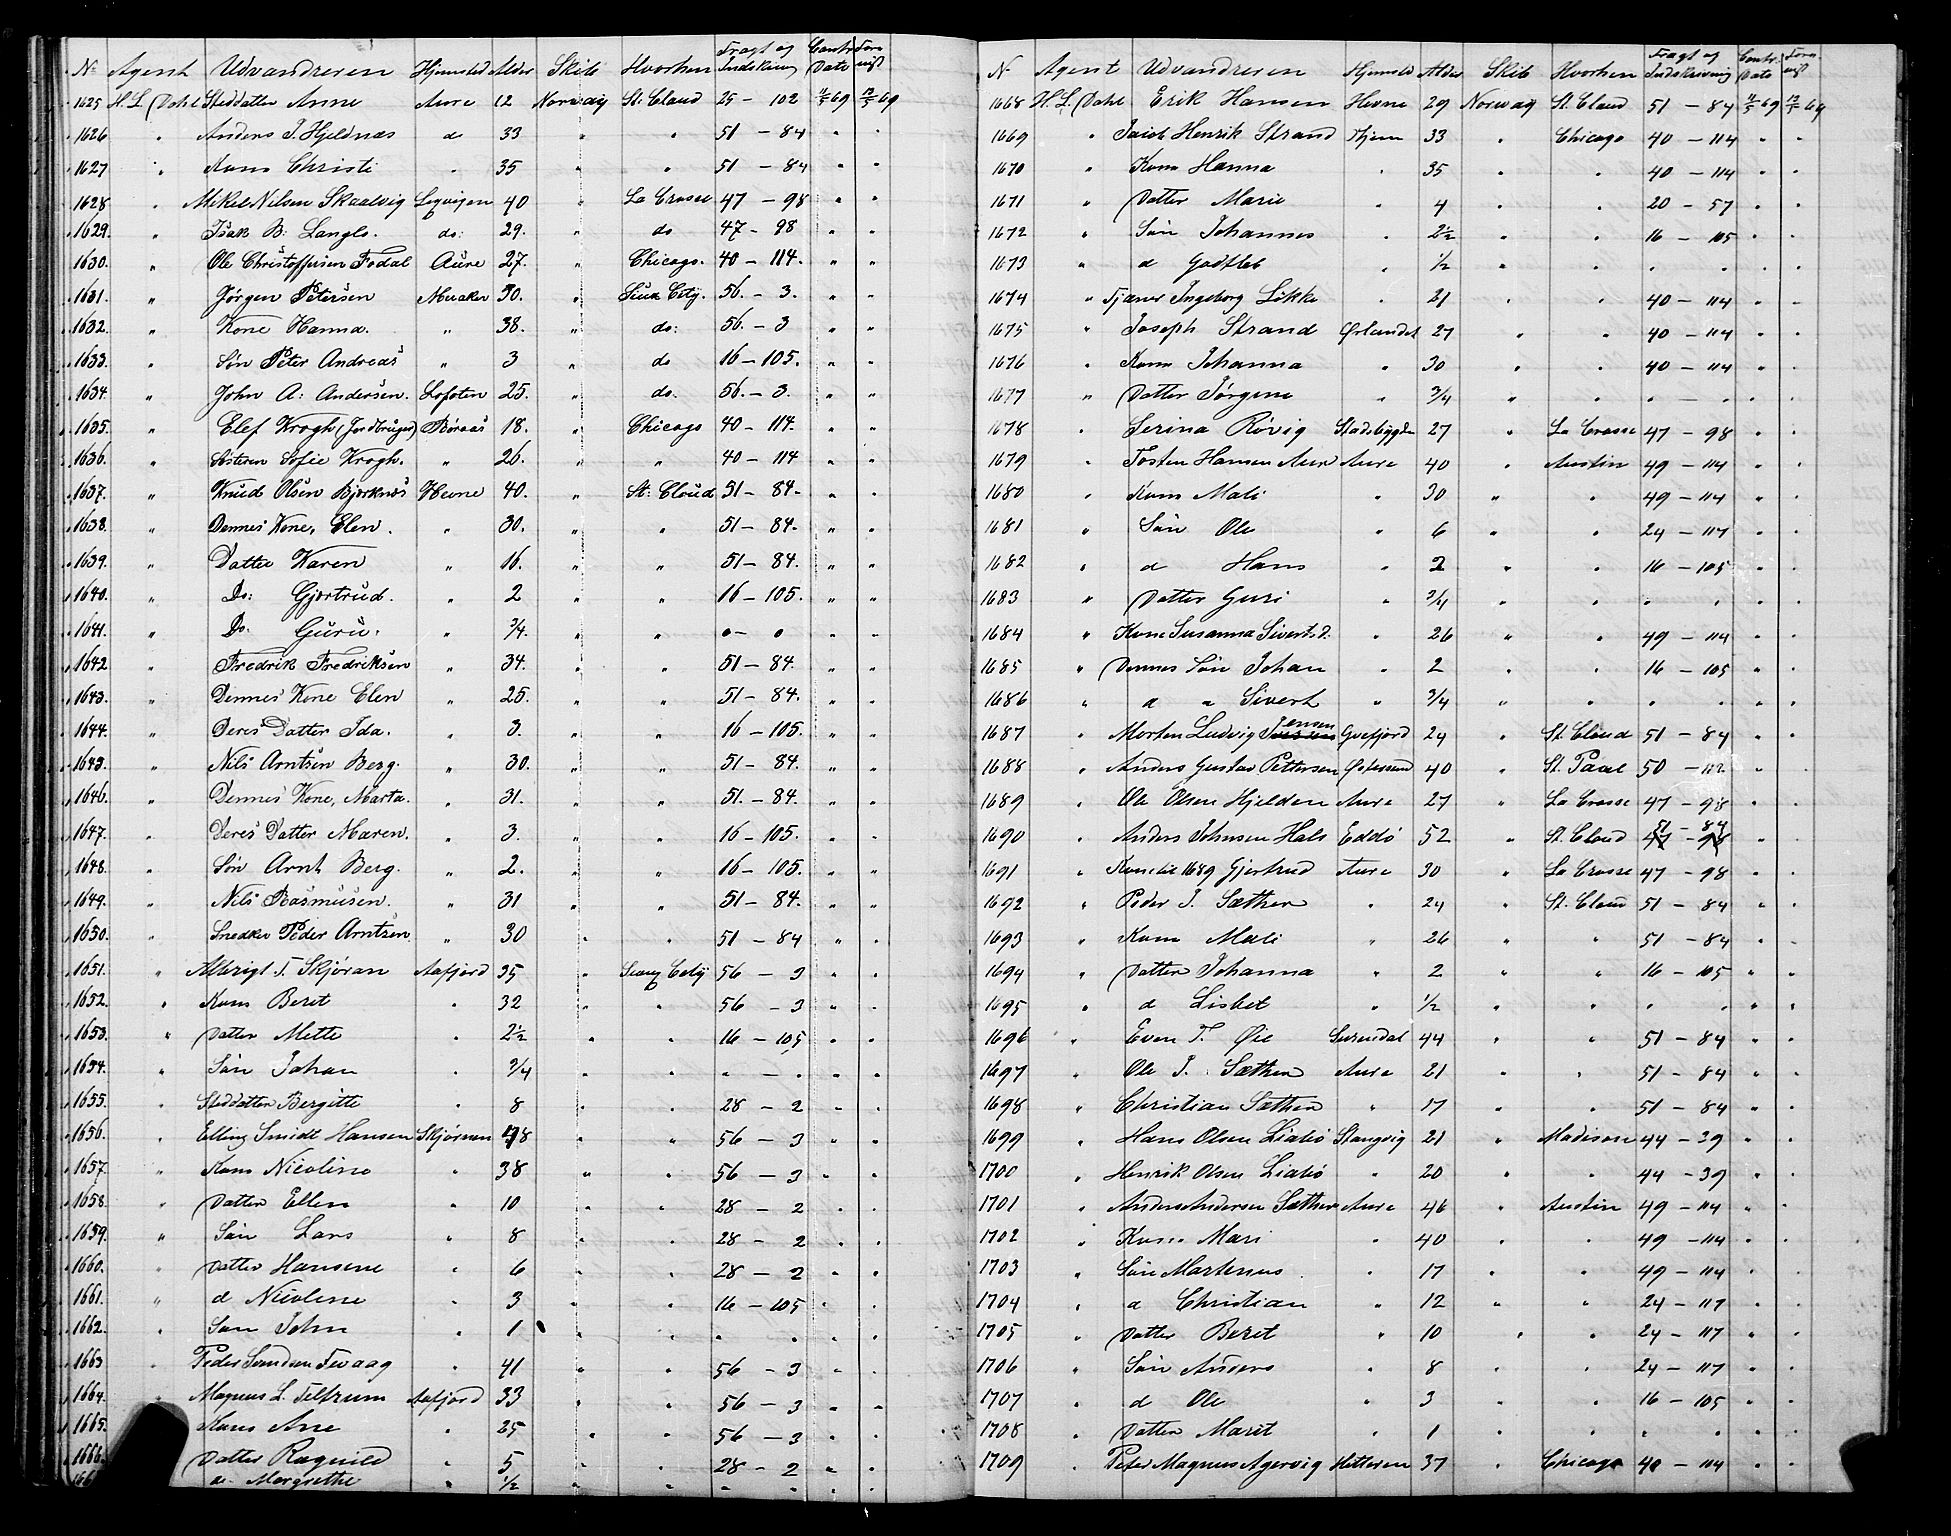 No Agent Udvandreren Hjemsted Alder Skib Hvorhen Fragt og Indskrivng Contr. Dato Foreviist
1625 H. L. Dahl Steddatter Anne Aure 12 Norway St. Cloud 25 - 102 11/5 69 12/5 69
1626 " Anders J. Hjeldnæs do 33 " " 51 - 84 " "
1627 " Kone Christi " 35 " " 51 - 84 " "
1628 " Mikel Nilsen Skaalvig Leqvigen 40 " La Crosse 47 - 98 " "
1629. " Isak B. Langlo. do: 29. " do 47 - 98 " "
1630. " Ole Christoffersen Fodal Aure 27. " Chicago. 40 - 114. " "
1631. " Jørgen Petersen Meraker 30. " Siux City. 56. - 3. " "
1632. " Kone Hanna. " 38. " do: 56. - 3 " "
1633. " Søn Peter Andreas " 3 " do 16 - 105. " "
1634. " John A: Andersen. Lofoten 25. " do. 56. - 3. " "
1635. " Elef Krogh (Jordbruger) Røraas 18. " Chicago 40 - 114. " "
1636. " Søsteren Sofie Krogh. " 26. " " 40 - 114 " "
1637. " Knud Olsen Bjerknæs Hevne 40. " St: Cloud 51 - 84. " "
1638. " Dennes Kone, Elen. " 30. " " 51 - 84. " "
1639. " Datter Karen " 16. " " 51 - 84. " "
1640. " Do: Gjertrud. " 2 " " 16 - 105. " "
1641. " Do. Guru. " 3/4. " " " - " " "
1642. " Fredrik Fredriksen " 34. " " 51 - 84. " "
1643. " Dennes Kone Elen " 25. " " 51 - 84. " "
1644. " Deres Datter Ida. " 3. " " 16 - 105. " "
1645. " Nils Arntsen Berg. " 30. " " 51 - 84. " "
1646. " Dennes Kone, Marta. " 31. " " 51. - 84. " "
1647. " Deres Datter Maren. " 3. " " 16 - 105. " "
1648. " Søn Arnt Berg. " 2. " " 16 - 105. " "
1649. " Nils Rasmusen. " 31 " " 51 - 84. " "
1650. " Snedker Peder Arntsen " 30 " " 51 - 84 " "
1651. " Albrigt T. Skjøran Aafjord 35 " Scoux City 56 - 3 " "
1652. " Kone Beret " 32 " " 56 - 3 " "
1653. " Datter Mette " 2½ " " 16 - 105 " "
1654. " Søn Johan " 3/4 " " " - " " "
1655. " Steddatter Bergitte " 8 " " 28 - 2 " "
1656. " Elling Smidt Hansen Skjørnen 48 " " 56 - 3 " "
1657. " Kone Nicoline " 38 " " 56 - 3 " "
1658. " Datter Ellen " 10 " " 28 - 2 " "
1659. " Søn Lars " 8 " " 28 - 2 " "
1660. " Datter Hansine " 6 " " 28 - 2 " "
1661. " d Nicoline " 3 " " 16 - 105 " "
1662. " Søn John " 1 " " " " " "
1663 " Peder Svendsen Fevaag " 41 " " 56 - 3 " "
1664. " Magnus L. Teltrum Aafjord 33 " " 56 - 3 " "
1665. Kone Ane " 25 " " 56 - 3 " "
1666. Datter Ragnild " 5 " " 28 - 2 " "
166 d. Margrethe " ½ " " " " " "
N Agent Udvandreren Hjemsted Alder Skib Hvorhen Fragt og Indskrivnig Contr. Dato Foreviist
1668 H. L. Dahl Erik Hansen Hevne 29 Norway St. Cloud 51 - 84 11/5 69 12/5 69
1669 " Jacob Henrik Strand Hjem 33 " Chicago 40 - 114 " "
1670 " Kone Hanna " 35 " " 40 - 114 " "
1671 " Datter Marie " 4 " " 20 - 57 " "
1672 " Søn Johannes " 2½ " " 16 - 105 " "
1673 " d Godtleb " ½ " " " " " "
1674 " Tjener Ingeborg Løkke " 21 " " 40 - 114 " "
1675 " Joseph Strand Ørlandet 27 " " 40 - 114 " "
1676 " Kone Johanna " 30 " " 40 - 114 " "
1677 " Datter Jørgine " 3/4 " " " - " " "
1678 " Serina Røvig Stadsbygden 27 " La Crosse 47 - 98 " "
1679 " Tosten Hansen Aure Aure 40 " Austin 49 - 114 " "
1680 " Kone Mali " 30 " " 49 - 114 " "
1681 " Søn Ole " 6 " " 24 - 117 " "
1682 " d Hans " 2 " " 16 - 105 " "
1683 " Datter Guri " 3/4 " " " " " "
1684 " Kone Susanna Sivertsd. " 26 " " 49 - 114 " "
1685 " Dennes Søn Johan " 2 " " 16 - 105 " "
1686 " d " Sivert " 3/4 " " " " " "
1687 " Morten Ludvig Jensen Gvefjord 24 " St. Cloud 51 - 84 " "
1688 " Anders Gustav Pettersen Østersund 40 " St. Paul 50 - 112 " "
1689 " Ole Olsen Hjelden Aure 27 " La Crosse 47 - 98 " "
1690 " Anders Johnsen Hals Eddø 52 " St. Cloud 51 - 84 47 - 98 " "
1691 " Kone til 1689 Gjertrud Aure 30 " La Crosse 47 - 98 " "
1692 " Peder J. Sæther " 24 " St. Cloud 51 - 84 " "
1693 " Kone Mali " 26 " " 51 - 84 " "
1694 " Datter Johanna " 2 " " 16 - 105 " "
1695 " d Lisbet " ½ " " " " " "
1696 " Even T. Øie Surendal 44 " " 51 - 84 " "
1697 " Ole J. Sæther Aure 21 " " 51 - 84 " "
1698 " Christian Sæther " 17 " " 51 - 84 " "
1699 " Hans Olsen Liabø Stangvig 21 " Madison 44 - 39 " "
1700 " Henrik Olsen Liabø " 20 " " 44 - 39 " "
1701 " Anders Andersen Sæther Aure 46 " Austin 49 - 114 " "
1702 " Kone Mari " 40 " " 49 - 114 " "
1703 " Søn Martenus " 17 " " 49 - 114 " "
1704 " d Christian " 12 " " 24 - 117 " "
1705 " Datter Beret " 10 " " 24 - 117 " "
1706 " Søn Anders " 8 " " 24 - 117 " "
1707 " d Ole " 3 " " 16 - 105 " "
1708 " Datter Marit " 1 " " " " " "
1709 " Peter Magnus Agervig Hitteren 37 " Chicago 40 - 114 " "